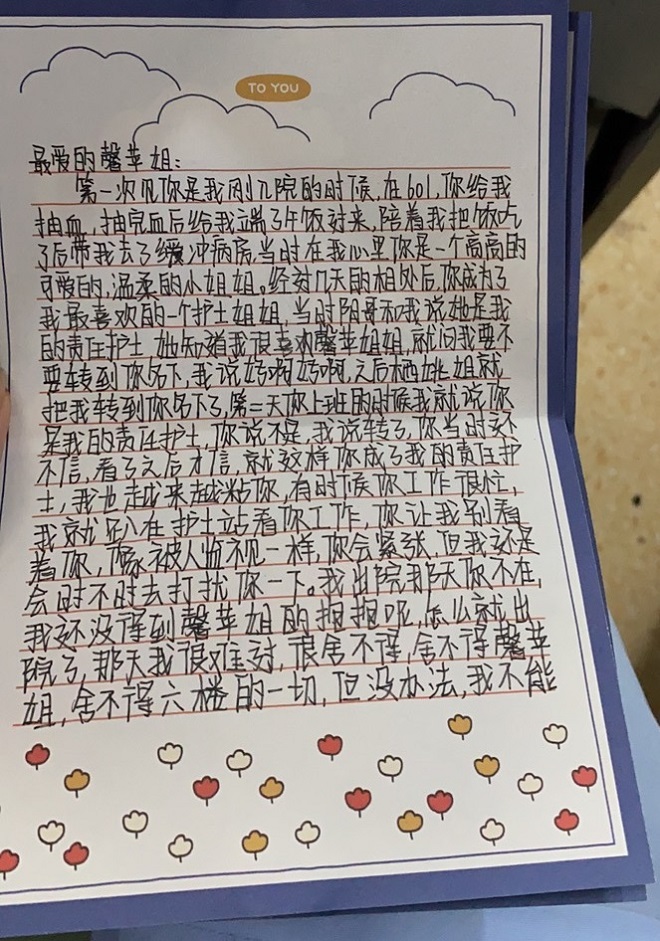 TO YOU
最爱的馨苹姐：
第一次见你是我刚入院的时候，在601，你给我
抽血，抽完血后给我端了午饭过来，陪着我把饭吃
了后带我去了缓冲病房，当时在我心里你是一个高高的
可爱的，温柔的小姐姐。经过几天的相处后，你成为了
我最喜欢的一个护士姐姐，当时阳哥和我说她是我
的责任护士，她知道我很喜欢馨苹姐姐，就问我要不
要转到你名下，我说好啊好啊，之后栖姚姐就
把我转到你名下了，第二天你上班的时候我就说你
是我的责任护士，你说不是，我说转了，你当时还
不信，看了之后才信，就这样你成了我的责任护
士，我也越来越粘你，有时候你工作很忙，
我就趴在护士站看你工作，你让我别看
着你，像被人监视一样，你会紧张，但我还是
会时不时去打扰你一下。我出院那天你不在，
我还没得到馨苹姐的抱抱呢，怎么就出
院了，那天我很难过，很舍不得，舍不得馨苹
姐，舍不得六楼的一切，但没办法，我不能